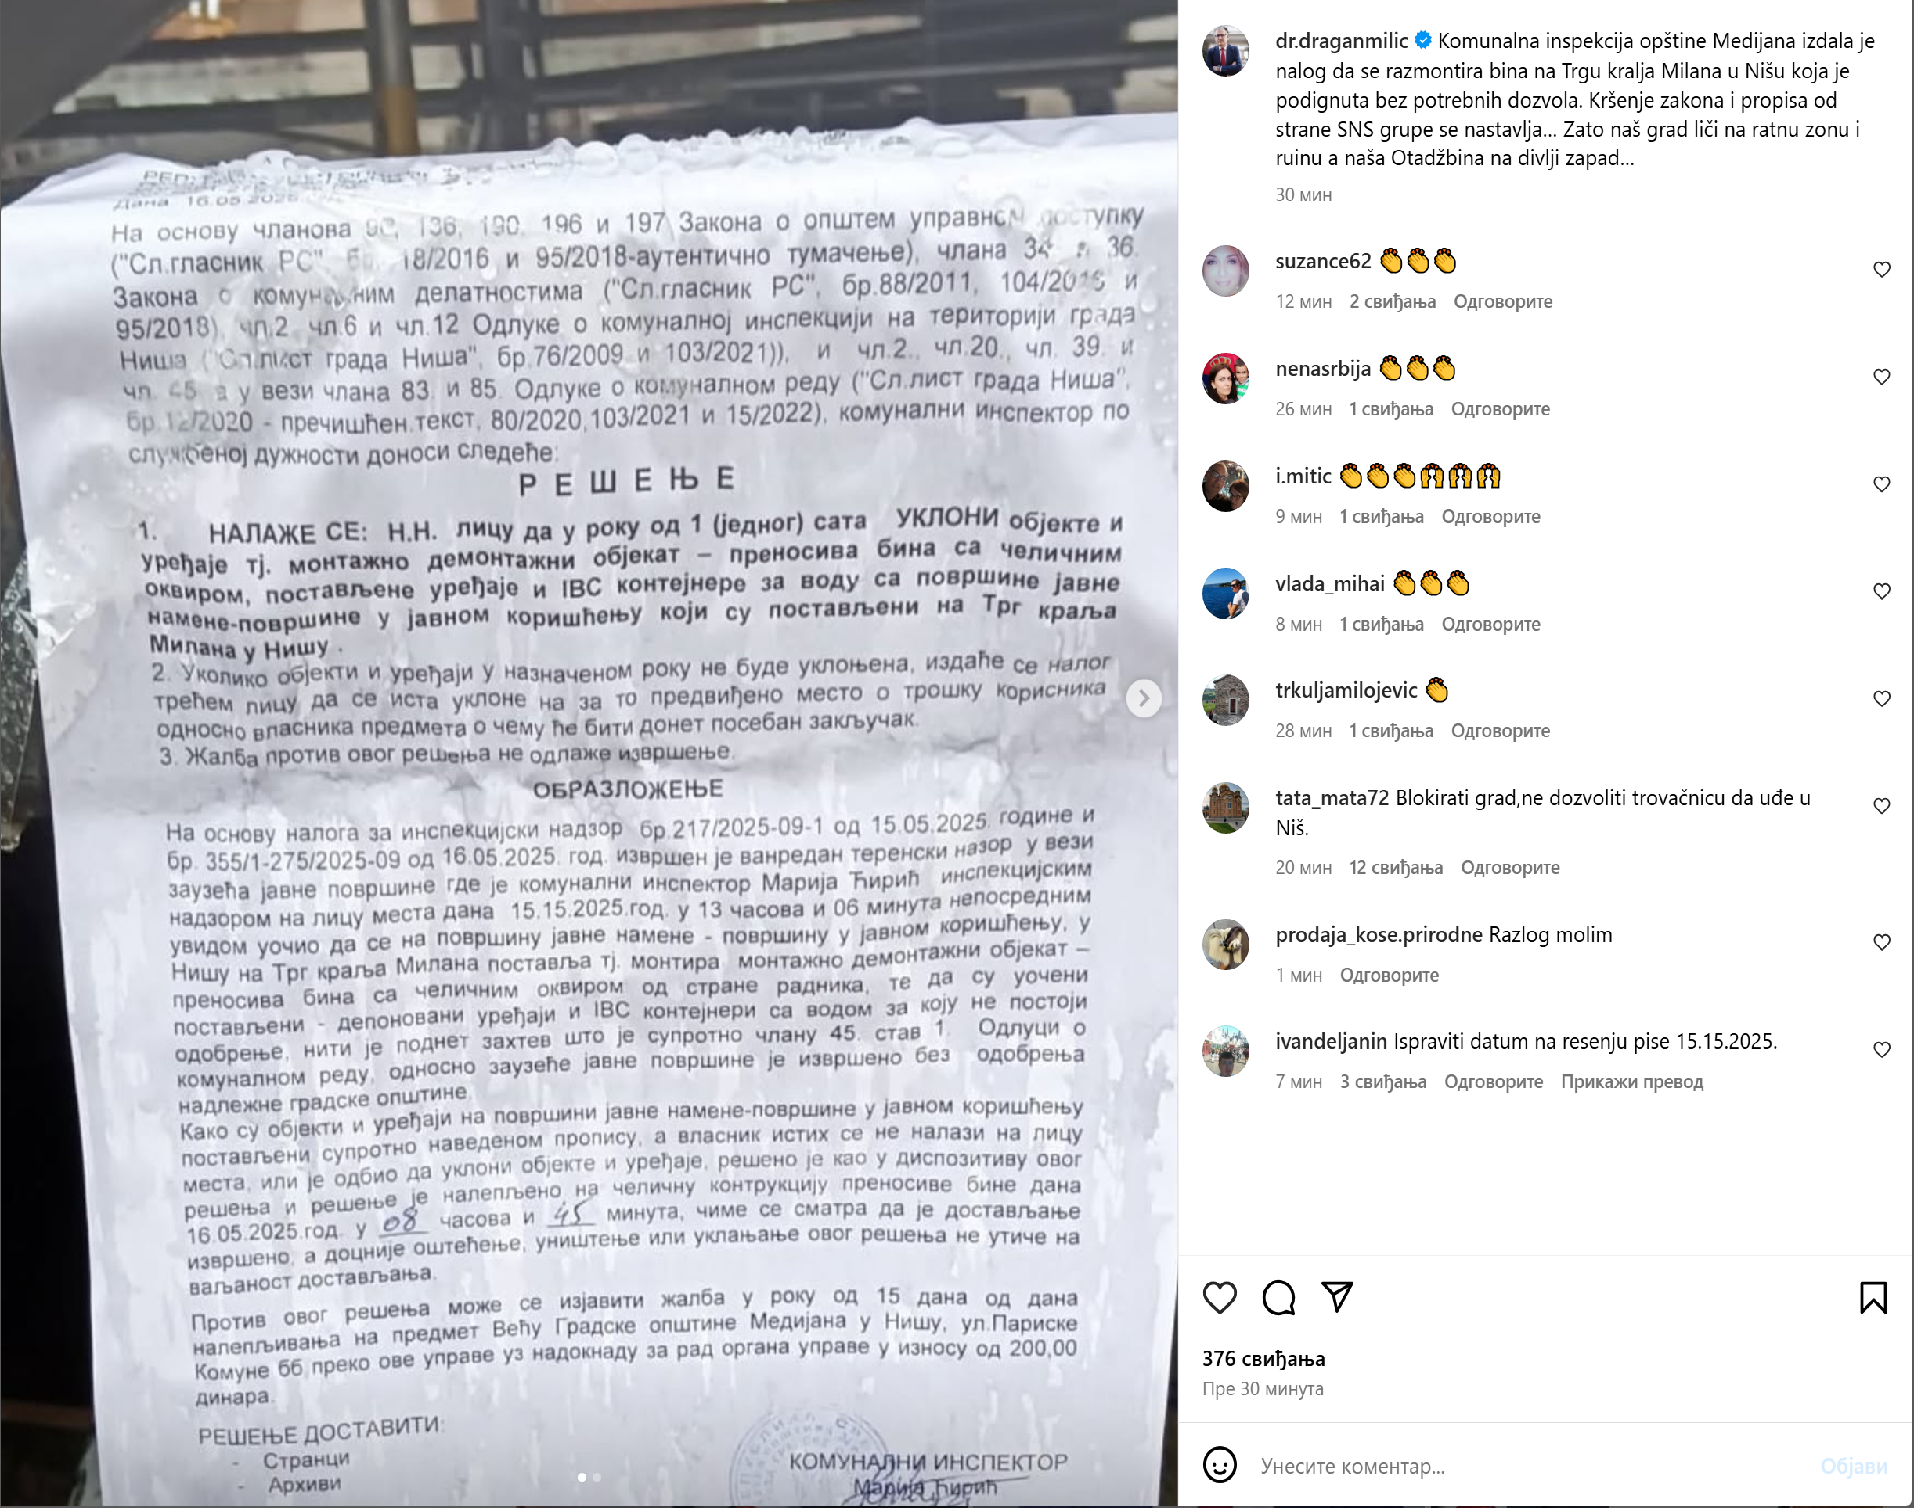 Дана 16.05.2025
На основу чланова 9, 136, 190, 196 и 197 Закона о општем управном поступку
("Сл.гласник РС" бр. 18/2016 и 95/2018-аутентично тумачење), члана 34 и 36.
Закона о комуналним делатностима ("Сл.гласник РС", бр.88/2011, 104/2016 и
95/2018), чл.2 чл.6 и чл.12 Одлуке о комуналној инспекцији на територији града
Ниша ("Сл.лист града Ниша", бр.76/2009 и 103/2021)), и чл.2., чл.20., чл. 39. и
чл. 45. а у вези члана 83. и 85. Одлуке о комуналном реду ("Сл.лист града Ниша",
бр.12/2020 - пречишћен.текст, 80/2020,103/2021 и 15/2022), комунални инспектор по
службеној дужности доноси следеће:
Р Е Ш Е Њ Е
1. НАЛАЖЕ СЕ: Н.Н. лицу да у року од 1 (једног) сата УКЛОНИ објекте и
уређаје тј. монтажно демонтажни објекат – преносива бина са челичним
оквиром, постављене уређаје и IBC контејнере за воду са површине јавне
намене-површине у јавном коришћењу који су постављени на Трг краља
Милана у Нишу .
2. Уколико објекти и уређаји у назначеном року не буде уклоњена, издаће се налог
трећем лицу да се иста уклоне на за то предвиђено место о трошку корисника
односно власника предмета о чему ће бити донет посебан закључак.
3. Жалба против овог решења не одлаже извршење.
ОБРАЗЛОЖЕЊЕ
На основу налога за инспекцијски надзор бр.217/2025-09-1 од 15.05.2025. године и
бр. 355/1-275/2025-09 од 16.05.2025. год. извршен је ванредан теренски назор у вези
заузећа јавне површине где је комунални инспектор Марија Ћирић инспекцијским
надзором на лицу места дана 15.15.2025.год. у 13 часова и 06 минута непосредним
увидом уочио да се на површину јавне намене - површину у јавном коришћењу, у
Нишу на Трг краља Милана поставља тј. монтира монтажно демонтажни објекат –
преносива бина са челичним оквиром од стране радника, те да су уочени
постављени - депоновани уређаји и IBC контејнери са водом за коју не постоји
одобрење, нити је поднет захтев што је супротно члану 45. став 1. Одлуци о
комуналном реду, односно заузеће јавне површине је извршено без одобрења
надлежне градске општине.
Како су објекти и уређаји на површини јавне намене-површине у јавном коришћењу
постављени супротно наведеном пропису, а власник истих се не налази на лицу
места, или је одбио да уклони објекте и уређаје, решено је као у диспозитиву овог
решења и решење је налепљено на челичну контрукцију преносиве бине дана
16.05.2025.год. у 08 часова и 45 минута, чиме се сматра да је достављање
извршено, а доцније оштећење, уништење или уклањање овог решења не утиче на
ваљаност достављања.
Против овог решења може се изјавити жалба у року од 15 дана од дана
налепљивања на предмет Већу Градске општине Медијана у Нишу, ул.Париске
Комуне бб преко ове управе уз надокнаду за рад органа управе у износу од 200,00
динара.
РЕШЕЊЕ ДОСТАВИТИ:
- Странци
- Архиви
КОМУНАЛНИ ИНСПЕКТОР
Марија Ћирић
dr.draganmilic Komunalna inspekcija opštine Medijana izdala je
nalog da se razmontira bina na Trgu kralja Milana u Nišu koja je
podignuta bez potrebnih dozvola. Kršenje zakona i propisa od
strane SNS grupe se nastavlja... Zato naš grad liči na ratnu zonu i
ruinu a naša Otadžbina na divlji zapad...
30 мин
suzance62 👏👏👏
12 мин 2 свиђања Одговорите
nenasrbija 👏👏👏
26 мин 1 свиђања Одговорите
i.mitic 👏👏👏🙌🙌🙌
9 мин 1 свиђања Одговорите
vlada_mihai 👏👏👏
8 мин 1 свиђања Одговорите
trkuljamilojevic 👏
28 мин 1 свиђања Одговорите
tata_mata72 Blokirati grad,ne dozvoliti trovačnicu da uđe u
Niš.
20 мин 12 свиђања Одговорите
prodaja_kose.prirodne Razlog molim
1 мин Одговорите
ivandeljanin Ispraviti datum na resenju pise 15.15.2025.
7 мин 3 свиђања Одговорите Прикажи превод
376 свиђања
Пре 30 минута
Унесите коментар...
Објави